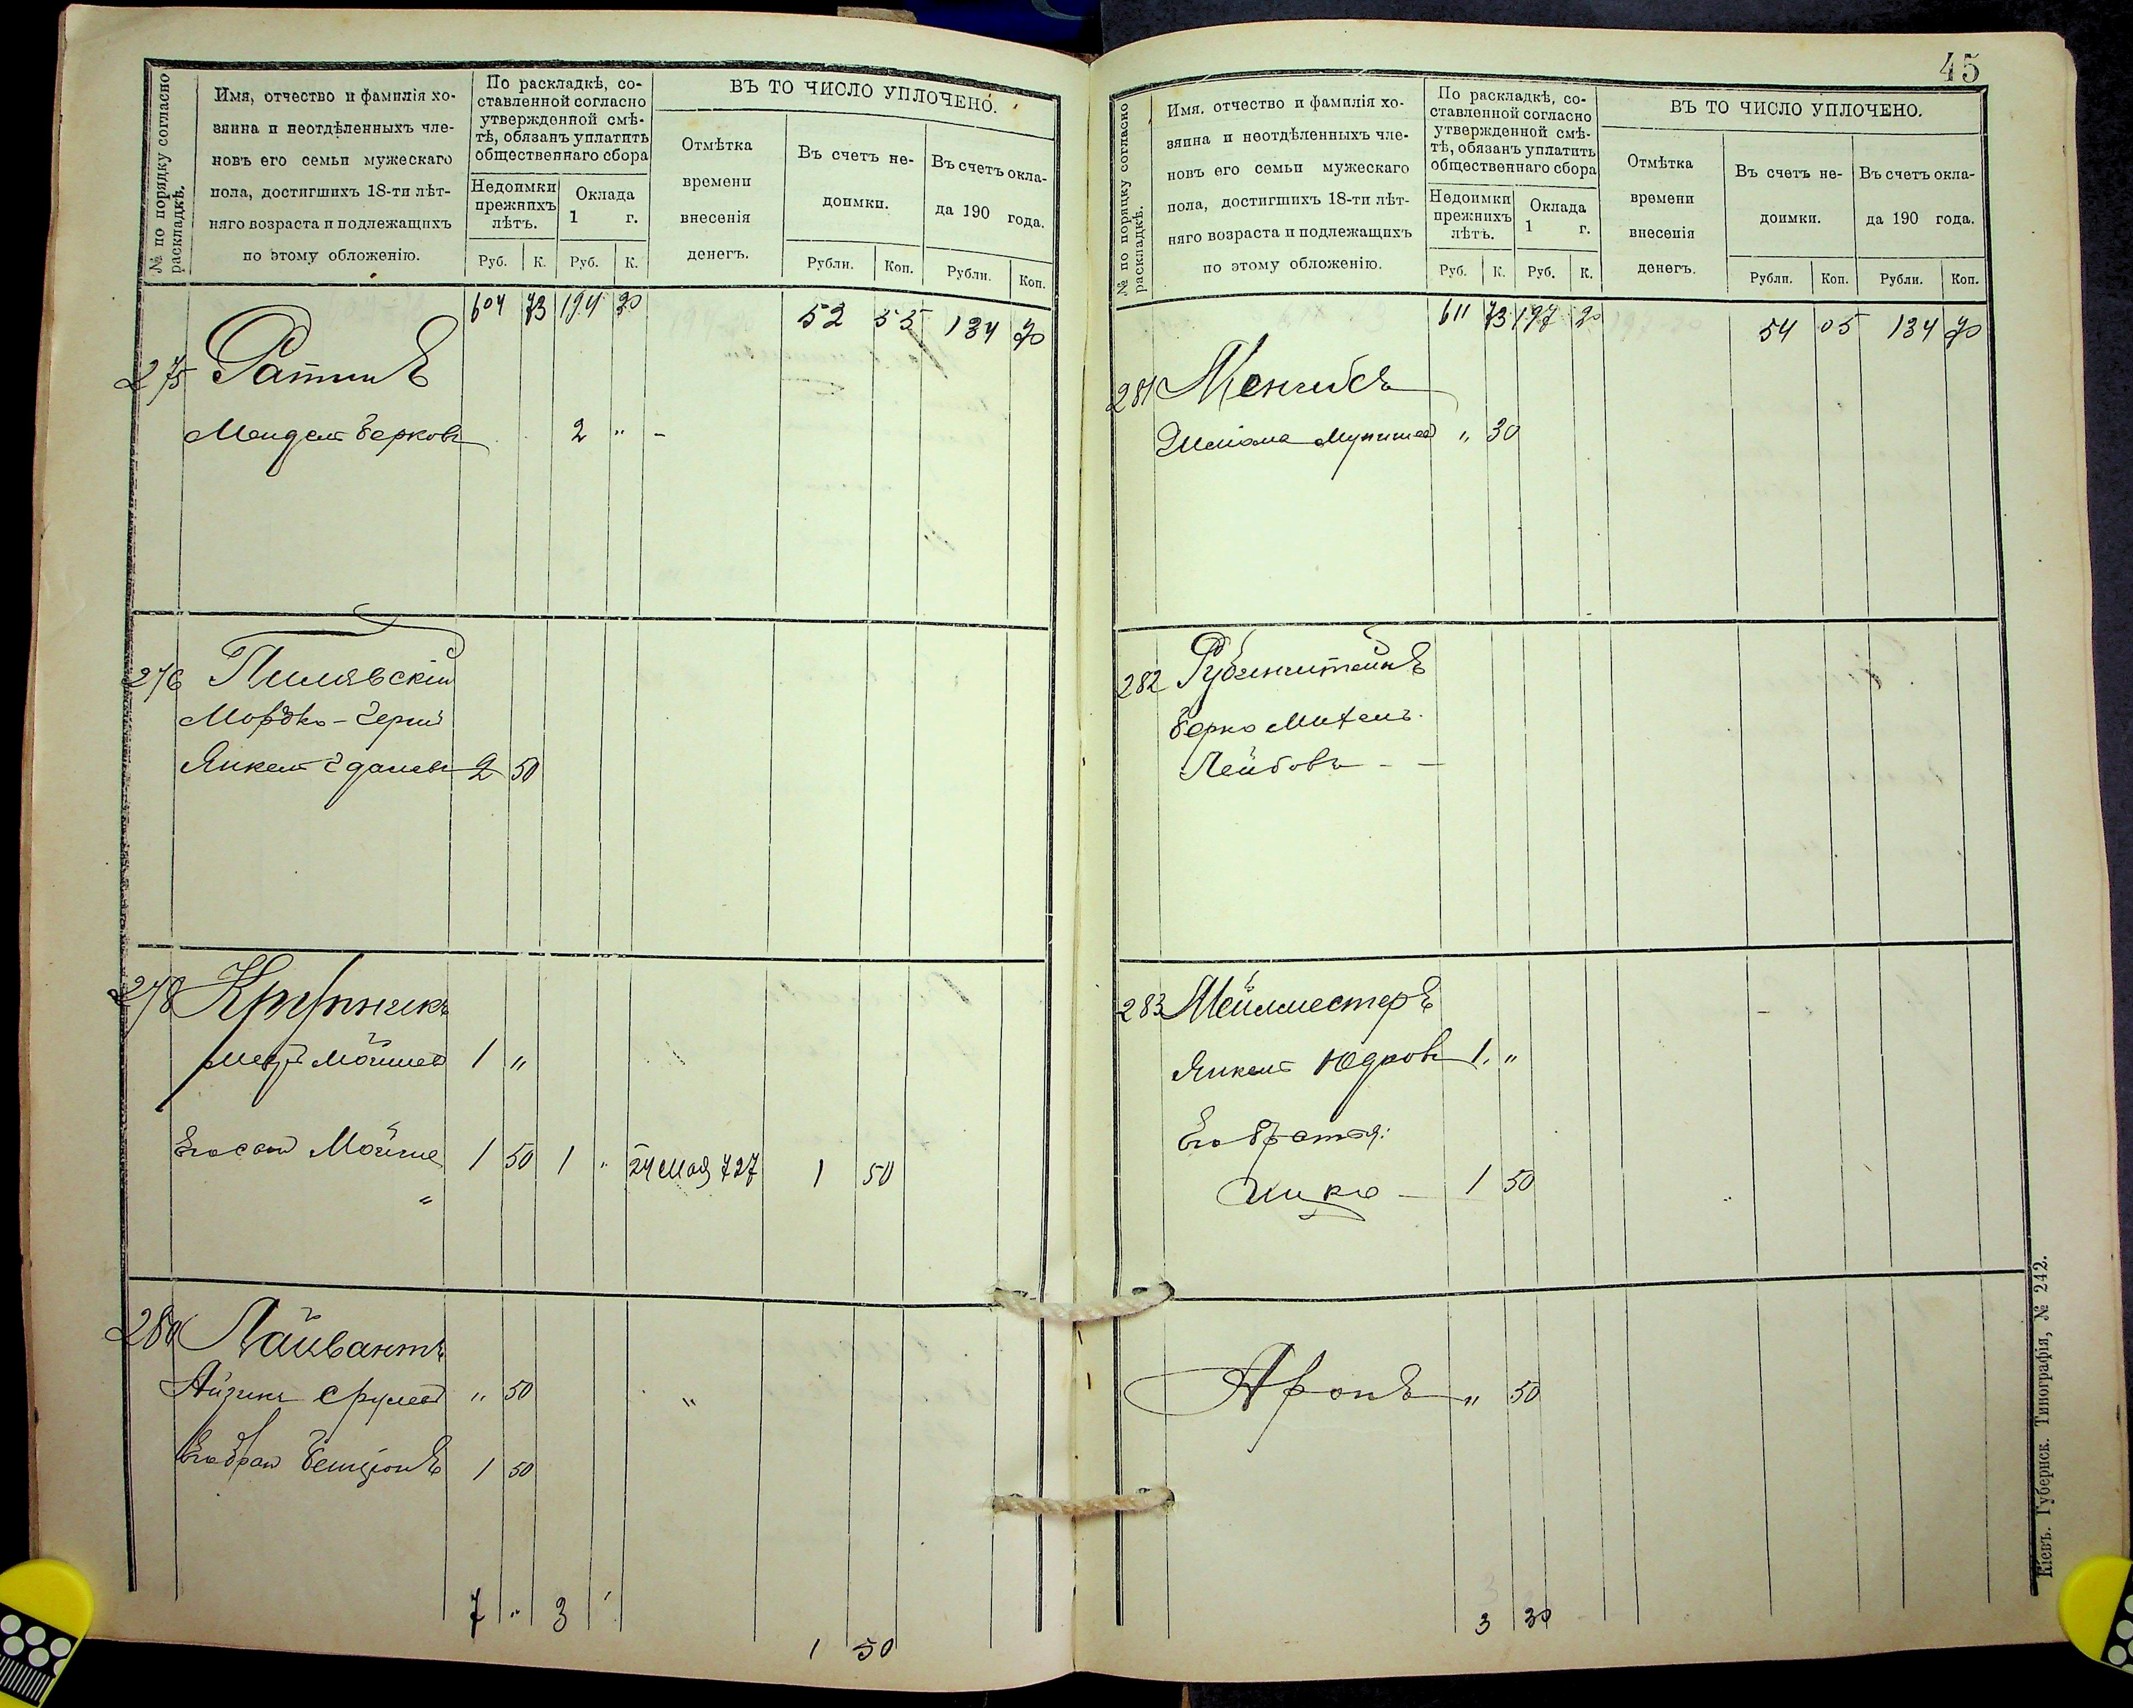 № по порядку согласно раскладкѣ.
Имя, отчество и фамилія хо-
зяина и неотдѣленныхъ чле-
новъ его семьи мужескаго
пола, достигшихъ 18-ти лѣт-
няго возраста и подлежащихъ
по этому обложенію.
По раскладкѣ, со-
ставленной согласно
утвержденной смѣ-
тѣ, обязанъ уплатить
общественнаго сбора
Недоимки
прежнихъ
лѣтъ.
Оклада
1 г.
Руб. К. Руб. К.
ВЪ ТО ЧИСЛО УПЛОЧЕНО.
Отмѣтка
времени
внесенія
денегъ.
Въ счетъ не-
доимки.
Въ счетъ окла-
да 190 года.
Рубли. Коп. Рубли. Коп.
604 73 194 20 52 55 134 70
275 Ратнъ
Мендель Берковъ 2 " -
276 Пилявскій
Мордко-Герш
Янкель Гдалев 2 50
278 Крупникъ
Меер Мошкев 1 "
Его сын Мойше 1 50 1 " 24 Мая 727 1 50
"
280 Лайвантъ
Айзикъ Срулев " 50 "
Его брат Бенціонъ 1 50
7 " 3 "
1 50
45
№ по порядку согласно раскладкѣ.
Имя, отчество и фамилія хо-
зяина и неотдѣленныхъ чле-
новъ его семьи мужескаго
пола, достигшихъ 18-ти лѣт-
няго возраста и подлежащихъ
по этому обложенію.
По раскладкѣ, со-
ставленной согласно
утвержденной смѣ-
тѣ, обязанъ уплатить
общественнаго сбора
Недоимки
прежнихъ
лѣтъ.
Оклада
1 г.
Руб. К. Руб. К.
ВЪ ТО ЧИСЛО УПЛОЧЕНО.
Отмѣтка
времени
внесенія
денегъ.
Въ счетъ не-
доимки.
Въ счетъ окла-
да 190 года.
Рубли. Коп. Рубли. Коп.
611 73 197 20 54 05 134 70
281
" 30
282 Рубинштейнъ
Берко Михель
Лейбовъ - -
283 Меймместеръ
Янкель Юдковъ 1 "
Его братья:
Ицко - 1 50
Аронъ " 50
3 30
Кіевъ. Губернск. Типографія, № 242.